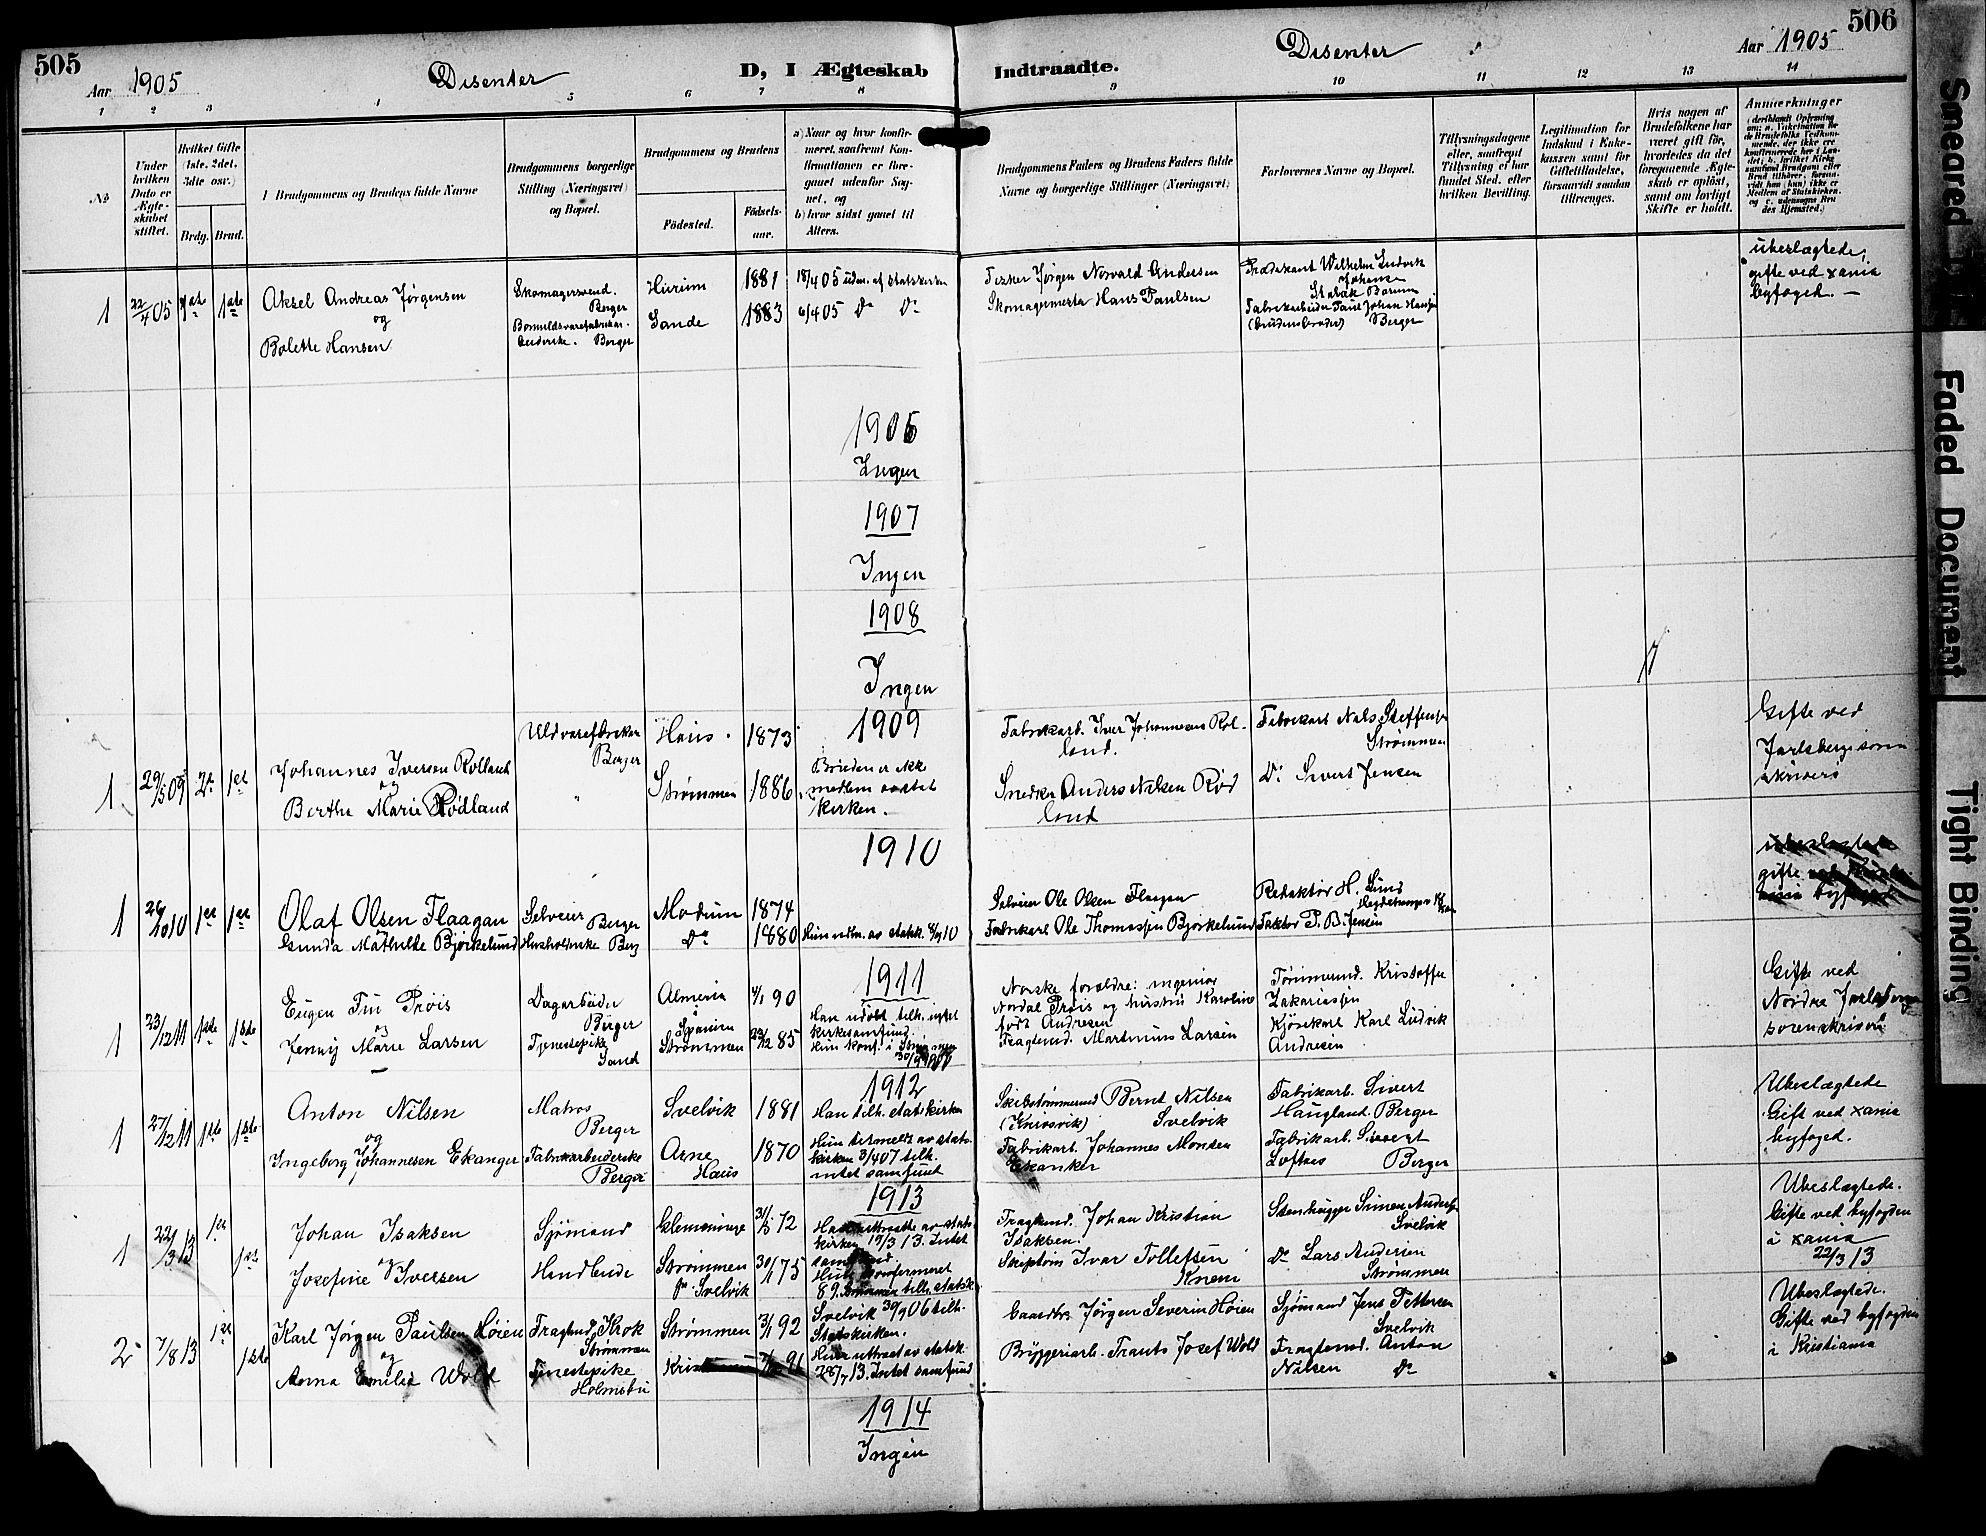 505
Aar 1905
Disenter
D, I Ægteskab
Indtraadte.
Disenter
Aar 1905
506
1 2 3 4 5 6 7 8 9 10 11 12 13 14
No
Under hvilken Dato er Ægteskabet stiftet.
Hvilket Gifte (1ste, 2det, 3dte osv.)
Brdg. Brud.
Brudgommens og Brudens fulde Navne
Brudgommens borgerlige Stilling (Næringsvei) og Bopæl.
Brudgommens og Brudens
Födested.
Födselsaar.
a) Naar og hvor konfirmeret, saafremt Konfirmationen er foregaaet udenfor Sognet, og
b) hvor sidst gaaet til Alters.
Brudgommens Faders og Brudens Faders fulde Navne og borgerlige Stillinger (Næringsvei)
Forlovernes Navne og Bopæl.
Tillysningsdagene eller, saafremt Tillysning ei har fundet Sted, efter hvilken Bevilling.
Legitimation for Indskud i Enkekassen samt for Giftetilladelse, forsaavidt saadan tiltrænges.
Hvis nogen af Brudefolkene har været gift før, hvorledes da det foregaaende Ægteskab er opløst, samt om lovligt Skifte er holdt.
Anmærkninger
1 22/4 05 1ste 1ste
Aksel Andreas Jørgensen
og
Bolette Hansen
Skomagersvend.
Berger
Berger
Hurum 1881
Sande 1883
18/4 05 udm. af statskirken
6/4 05 Do Do
Fisker Jørgen Norvald Andersen
Skomagermester Hans Paulsen
Prædikant Wilhelm Ludvik
Johansen
Stabæk Bærum
Fabrikarbeider Paul Johan Hansen
(brudens broder) Berger
ubeslægtede,
gifte ved Xania
byfoged. —
1906
Ingen
1907
Ingen
1908
Ingen
1909
1 29/5 09 2det 1ste
Johannes Iversen Rolland
og
Berthe Marie Rødland
Uldvarefabriken
Berger
Haus 1873
Strømmen 1886
Bruden er ikke
medlem av stats
kirken.
Fabrikarb. Iver Johannesen Rol-
land.
Snedker Anders Nilsen Rød
land
Fabrikarb Nils Steffensen
Strømmen
Do Sivert Jensen
Gifte ved
Jarlsberg soren
skriveri
1910
1 26/10 10 1ste 1ste
Olaf Olsen Flaagan
Gunda Mathilde Bjørkelund
Selveier
Berger
Husholderske Berg
Modum 1874
Do 1880
Hun udm. av statsk. 8/9 10
Selveier Ole Olsen Flaagan
Fabrikarb Ole Thomassen Bjørkelund
Redaktør H. Lund
Faktor P. B. Jensen
ubeslægtede
gifte
byfoged
1911
1 23/12 11 1ste 1ste
Eugen Prøis
og
Jenny Marie Larsen
Dagarbeider
Berger
Tjenestepike
Sand
Almeria
Spanien 4/1 90
Strømmen 22/12 85
Han udøbt tilh. intet
kirkesamfund.
Hun konf. i Strømmen
Norske forældre: ingeniør
Nordal Prøis og hustru Karoline
født Andresen
Fragtemd. Martinius Larsen
Tømmermd. Kristoffer
Zakariassen
Kjørekarl Karl Ludvik
Andresen
Gifte ved
Nordre Jarlsberg
sorenskriveri
1912
1 27/12 11 1ste 1ste
Anton Nilsen
og
Ingeborg Johannesen Ekanger
Matros
Berger
Fabrikarbeiderske
Berger
Svelvik 1881
Arne
Haus 1870
Han tilh. statskirken
Hun utmeldt av stats-
kirken 3/4 07 tilh.
intet samfund
Skibstømmermand Bernt Nilsen
Svelvik
Fabrikarb. Johannes Monsen
Ekanker
Fabrikarb. Sivert
Haugland Berger
Fabrikarb. Sivert
Loftnes Berger
Ubeslægtede
Gift ved Xania
byfoged.
1913
1 22/3 13 1ste 1ste
Johan Isaksen
og
Josefine Iversen
Sjømand
Handlende
31/3 72
Strømmen
pr Svelvik 30/1 75
Han uttraadte av stats-
kirken 19/3 13. Intet
samfund.
Hun konfirmeret
89. Strømmen tilh. statsk.
Fragtemd. Johan Kristian
Isaksen.
Skibstøm Ivar Tollefsen
Knem
Stenhugger Simen Anders
Svelvik
Do Lars Andersen
Strømmen
Ubeslægtede.
Gifte ved byfogden
i Xania
22/3 13
2 7/8 13 1ste 1ste
Karl Jørgen Paulsen Høien
og
Anna Emilie Wold
Fragtmd, Krok
Strømmen
Tjenestepike
Holmsbu
Strømmen 3/1 92
Svelvik 30/9 06 tilh.
Statskirken.
Hun uttraat av statsk.
28/7 13. Intet samfund
Gaardbr. Jørgen Severin Høien
Bryggeriarb. Frants Josef Wold
Sjømand Jens Pettersen
Svelvik
Fragtemd. Anton
Nilsen Do
Ubeslægtede.
Gifte ved byfogden
i Kristiania
1914
Ingen
Smeared
Faded Document
Tight Binding